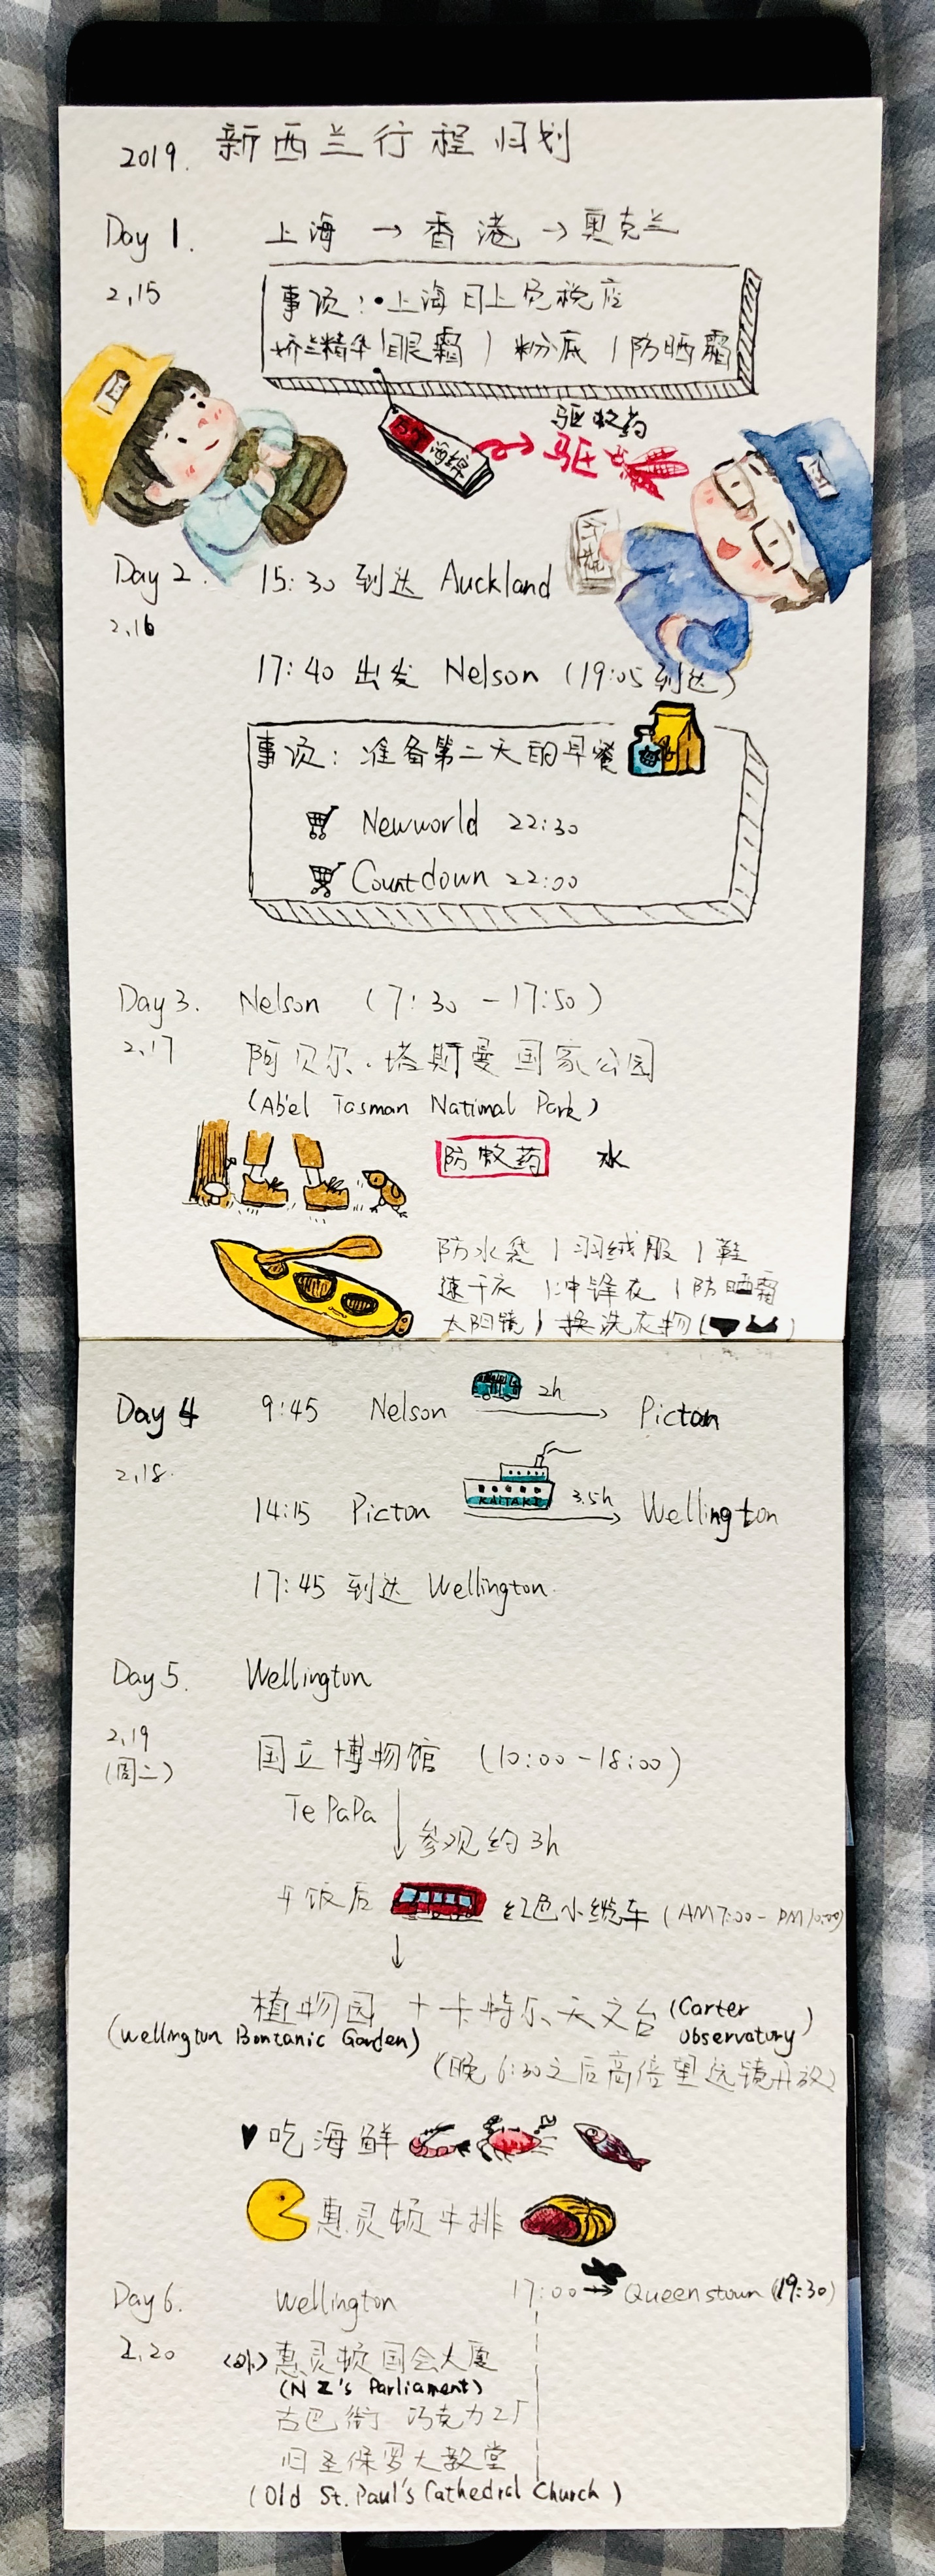 2019. 新西兰行程归划
Day 1. 上海 → 香港 → 奥克兰
2,15
事项: •上海日上免税店
娇兰精华 | 眼霜 | 粉底 | 防晒霜
海绵
驱蚊药
驱
行程
Day 2. 15:30 到达 Auckland
2,16
17:40 出发 Nelson (19:05 到达)
事项: 准备第二天的早餐
Newworld 22:30
Countdown 22:00
Day 3. Nelson (7:30 - 17:50)
2,17
阿贝尔·塔斯曼国家公园
(Abel Tasman National Park)
防蚊药 水
防水袋 | 羽绒服 | 鞋
速干衣 | 冲锋衣 | 防晒霜
太阳镜 | 换洗衣物 ( )
Day 4 9:45 Nelson 2h → Picton
2,18.
KAITAKI
14:15 Picton 3.5h → Wellington
17:45 到达 Wellington.
Day 5. Wellington
2,19
(周二)
国立博物馆 (10:00-18:00)
Te PaPa
↓ 参观约3h
午饭后 红色小缆车 (AM7:00 - PM10:00)
↓
植物园 + 卡特尔天文台 (Carter Observatory)
(Wellington Bontanic Garden)
(晚6:30之后高倍望远镜开放)
♥吃海鲜
惠灵顿牛排
Day 6. Wellington 17:00 → Queenstown (19:30)
2,20
(外) 惠灵顿国会大厦
(NZ's Parliament)
古巴街 巧克力工厂
旧圣保罗大教堂
(Old St. Paul's Cathedral Church)